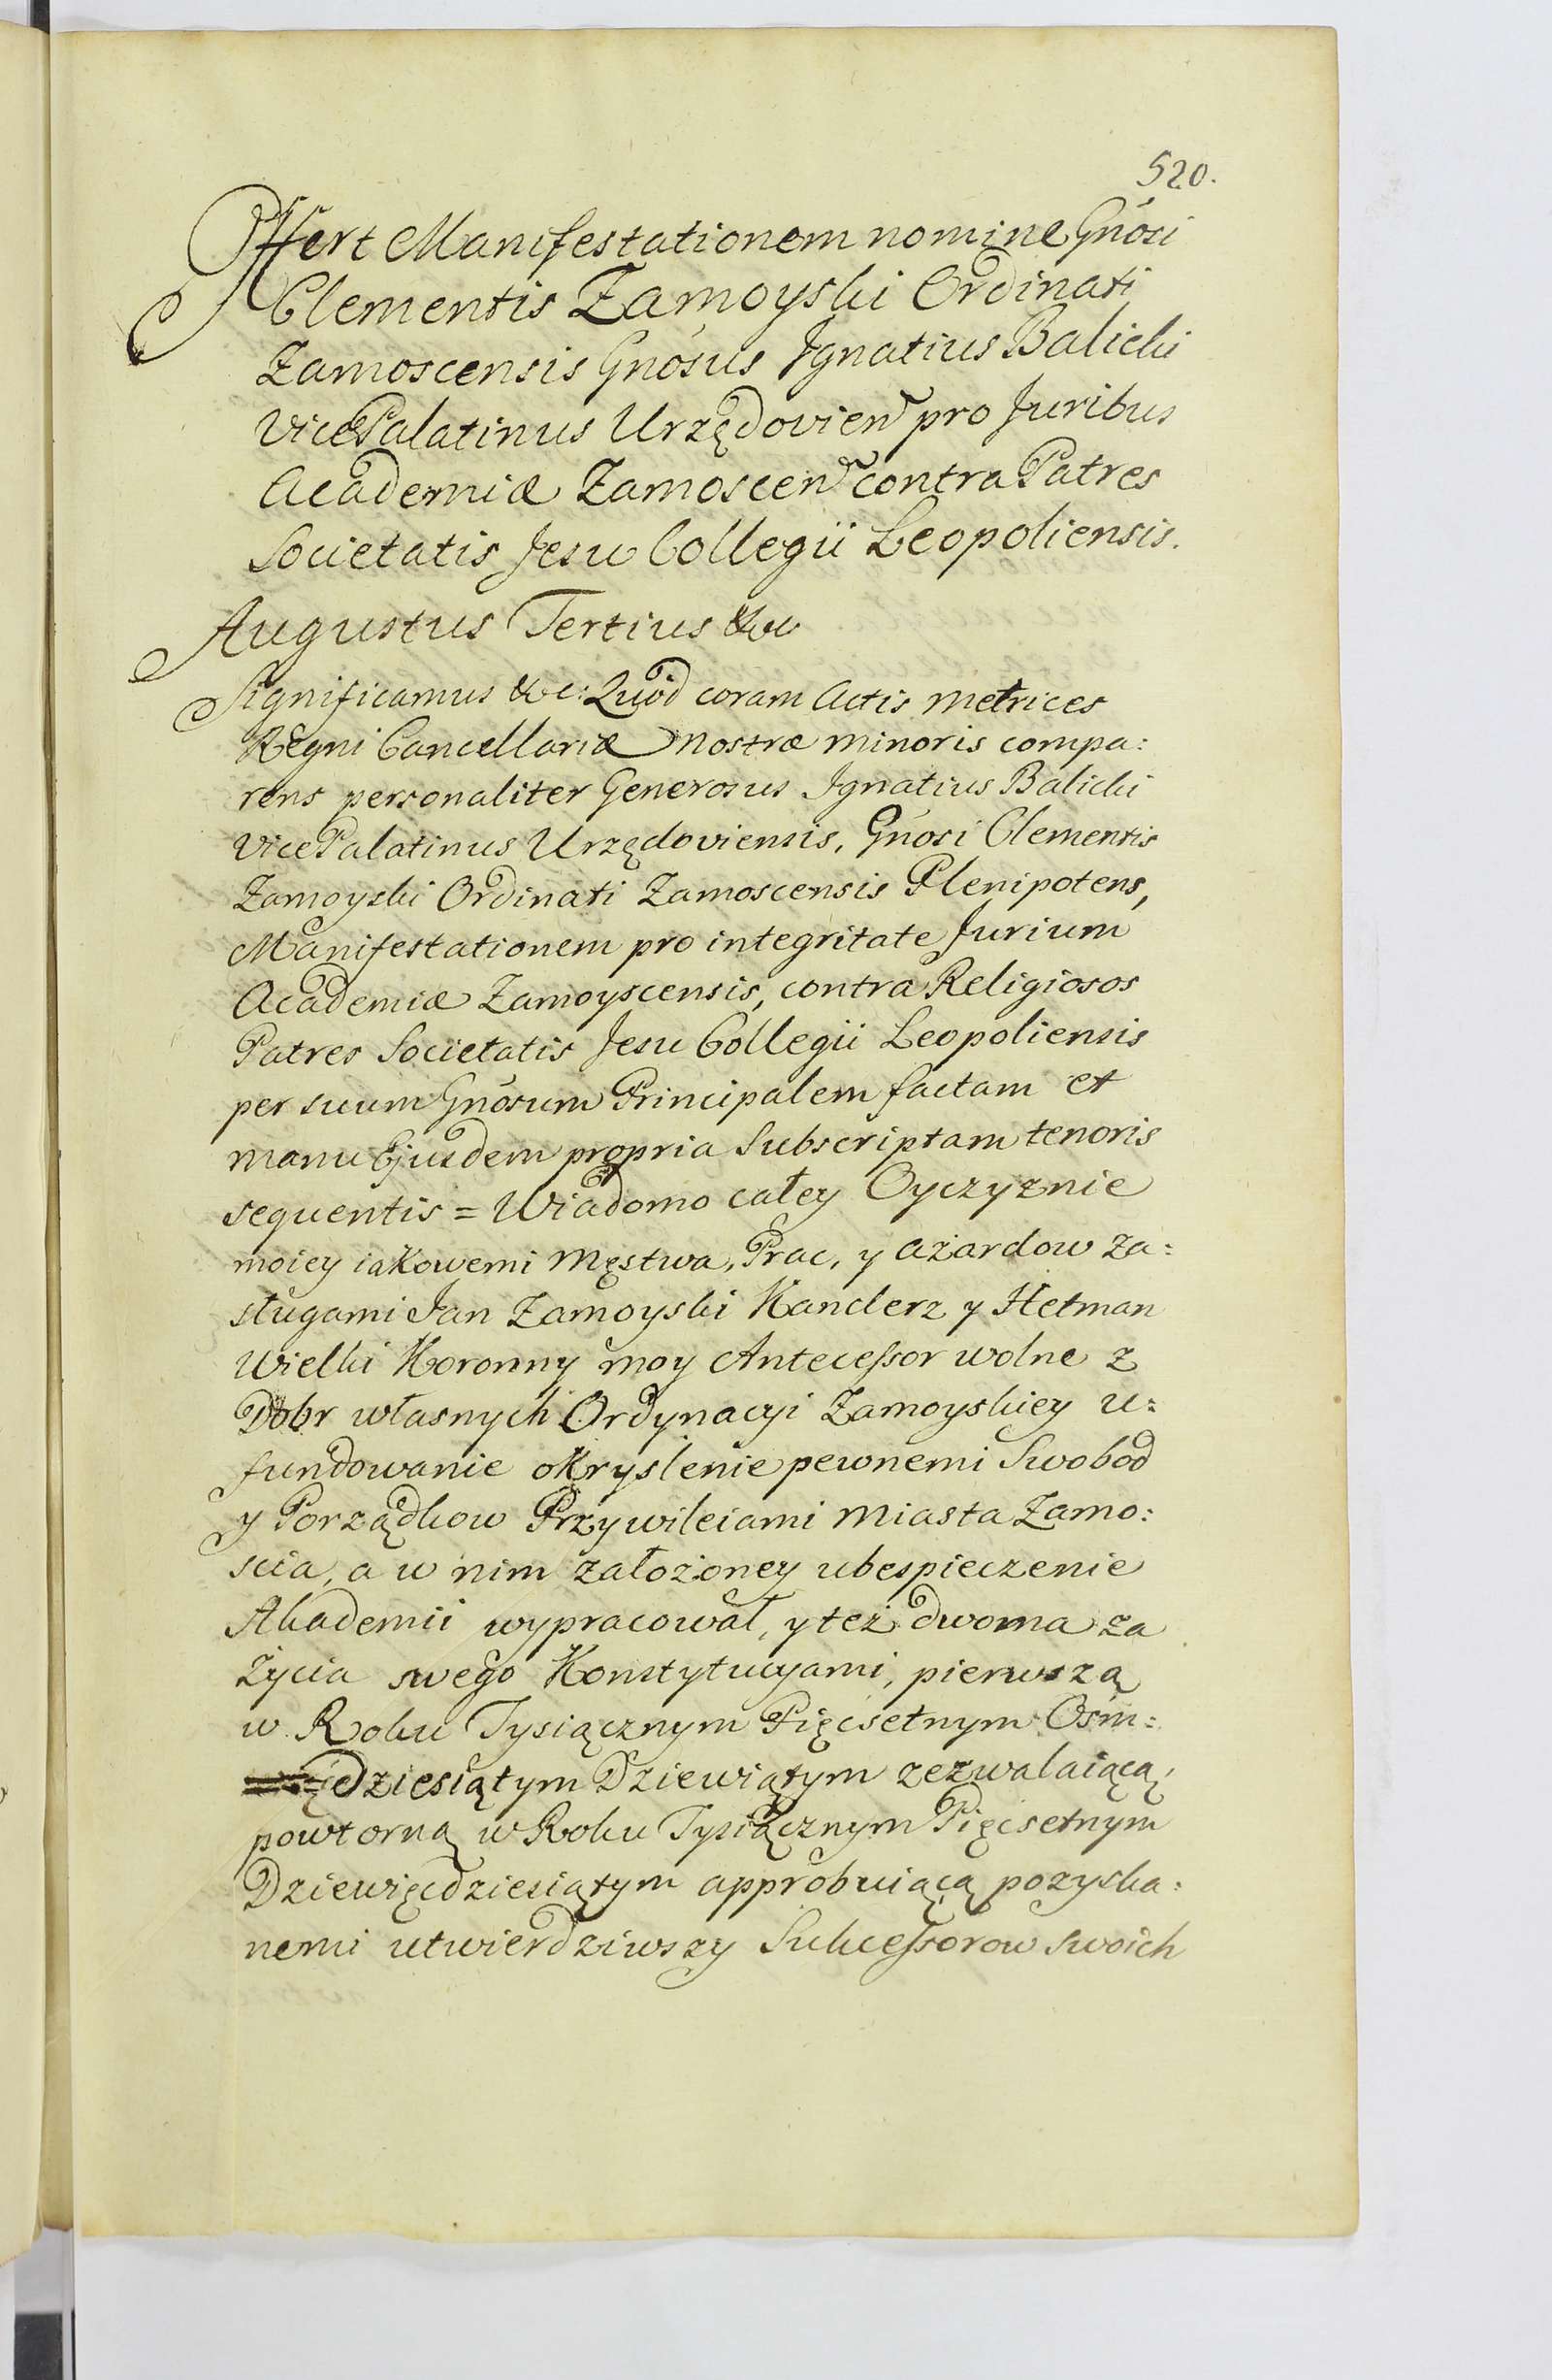 520.
Offert Manifestationem nomine Gnósi
Clementis Zamoyski Ordinati
Zamoscensis Gnósus Ignatius Balicki
VicePalatinus Urzędovien̄ pro Juribus
Academiæ Zamoscen̄ contra Patres
Societatis Jesu Collegii Leopoliensis.
Augustus Tertius &c
Significamus &c: Quod coram Actis Metrices
Regni Cancellariæ Nostræ minoris compa:
rens personaliter Generosus Ignatius Balicki
VicePalatinus Urzędoviensis, Gnósi Clementis
Zamoyski Ordinati Zamoscensis Plenipotens,
Manifestationem pro integritate Jurium
Academiæ Zamoyscensis, contra Religiosos
Patres Societatis Jesu Collegii Leopoliensis
per suum Gnósum Principalem factam et
manu Ejusdem propria Subscriptam tenoris
sequentis = Wiadomo całey Oyczyznie
moiey iakowemi Męstwa, Prac, y ażardow za=
sługami Jan Zamoyski Kanclerz y Hetman
Wielki Koronny moy Antecessor wolne z
Dobr własnych Ordynacyi Zamoyskiey u=
fundowanie okryslenie pewnemi Swobod
y Porządkow Przywileiami Miasta Zamo:
scia, a w nim założoney ubespieczenie
Akademii wypracował, y też dwoma za
życia swego Konstytucyami, pierwszą
w Roku Tysiącznym Pięcsetnym Osm=
dziesiątym Dziewiątym zezwalaiącą,
powtorną w Roku Tysiącznym Pięcsetnym
Dziewięcdziesiątym approbuiącą pozyska:
nemi utwierdziwszy Sukcessorow swoich